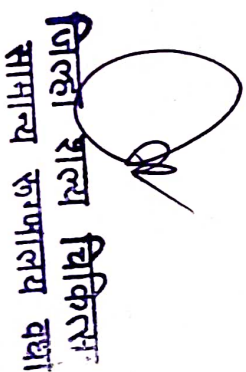 जिल्हा शल्य चिकित्स
सामान्य रूग्णालय वर्धा